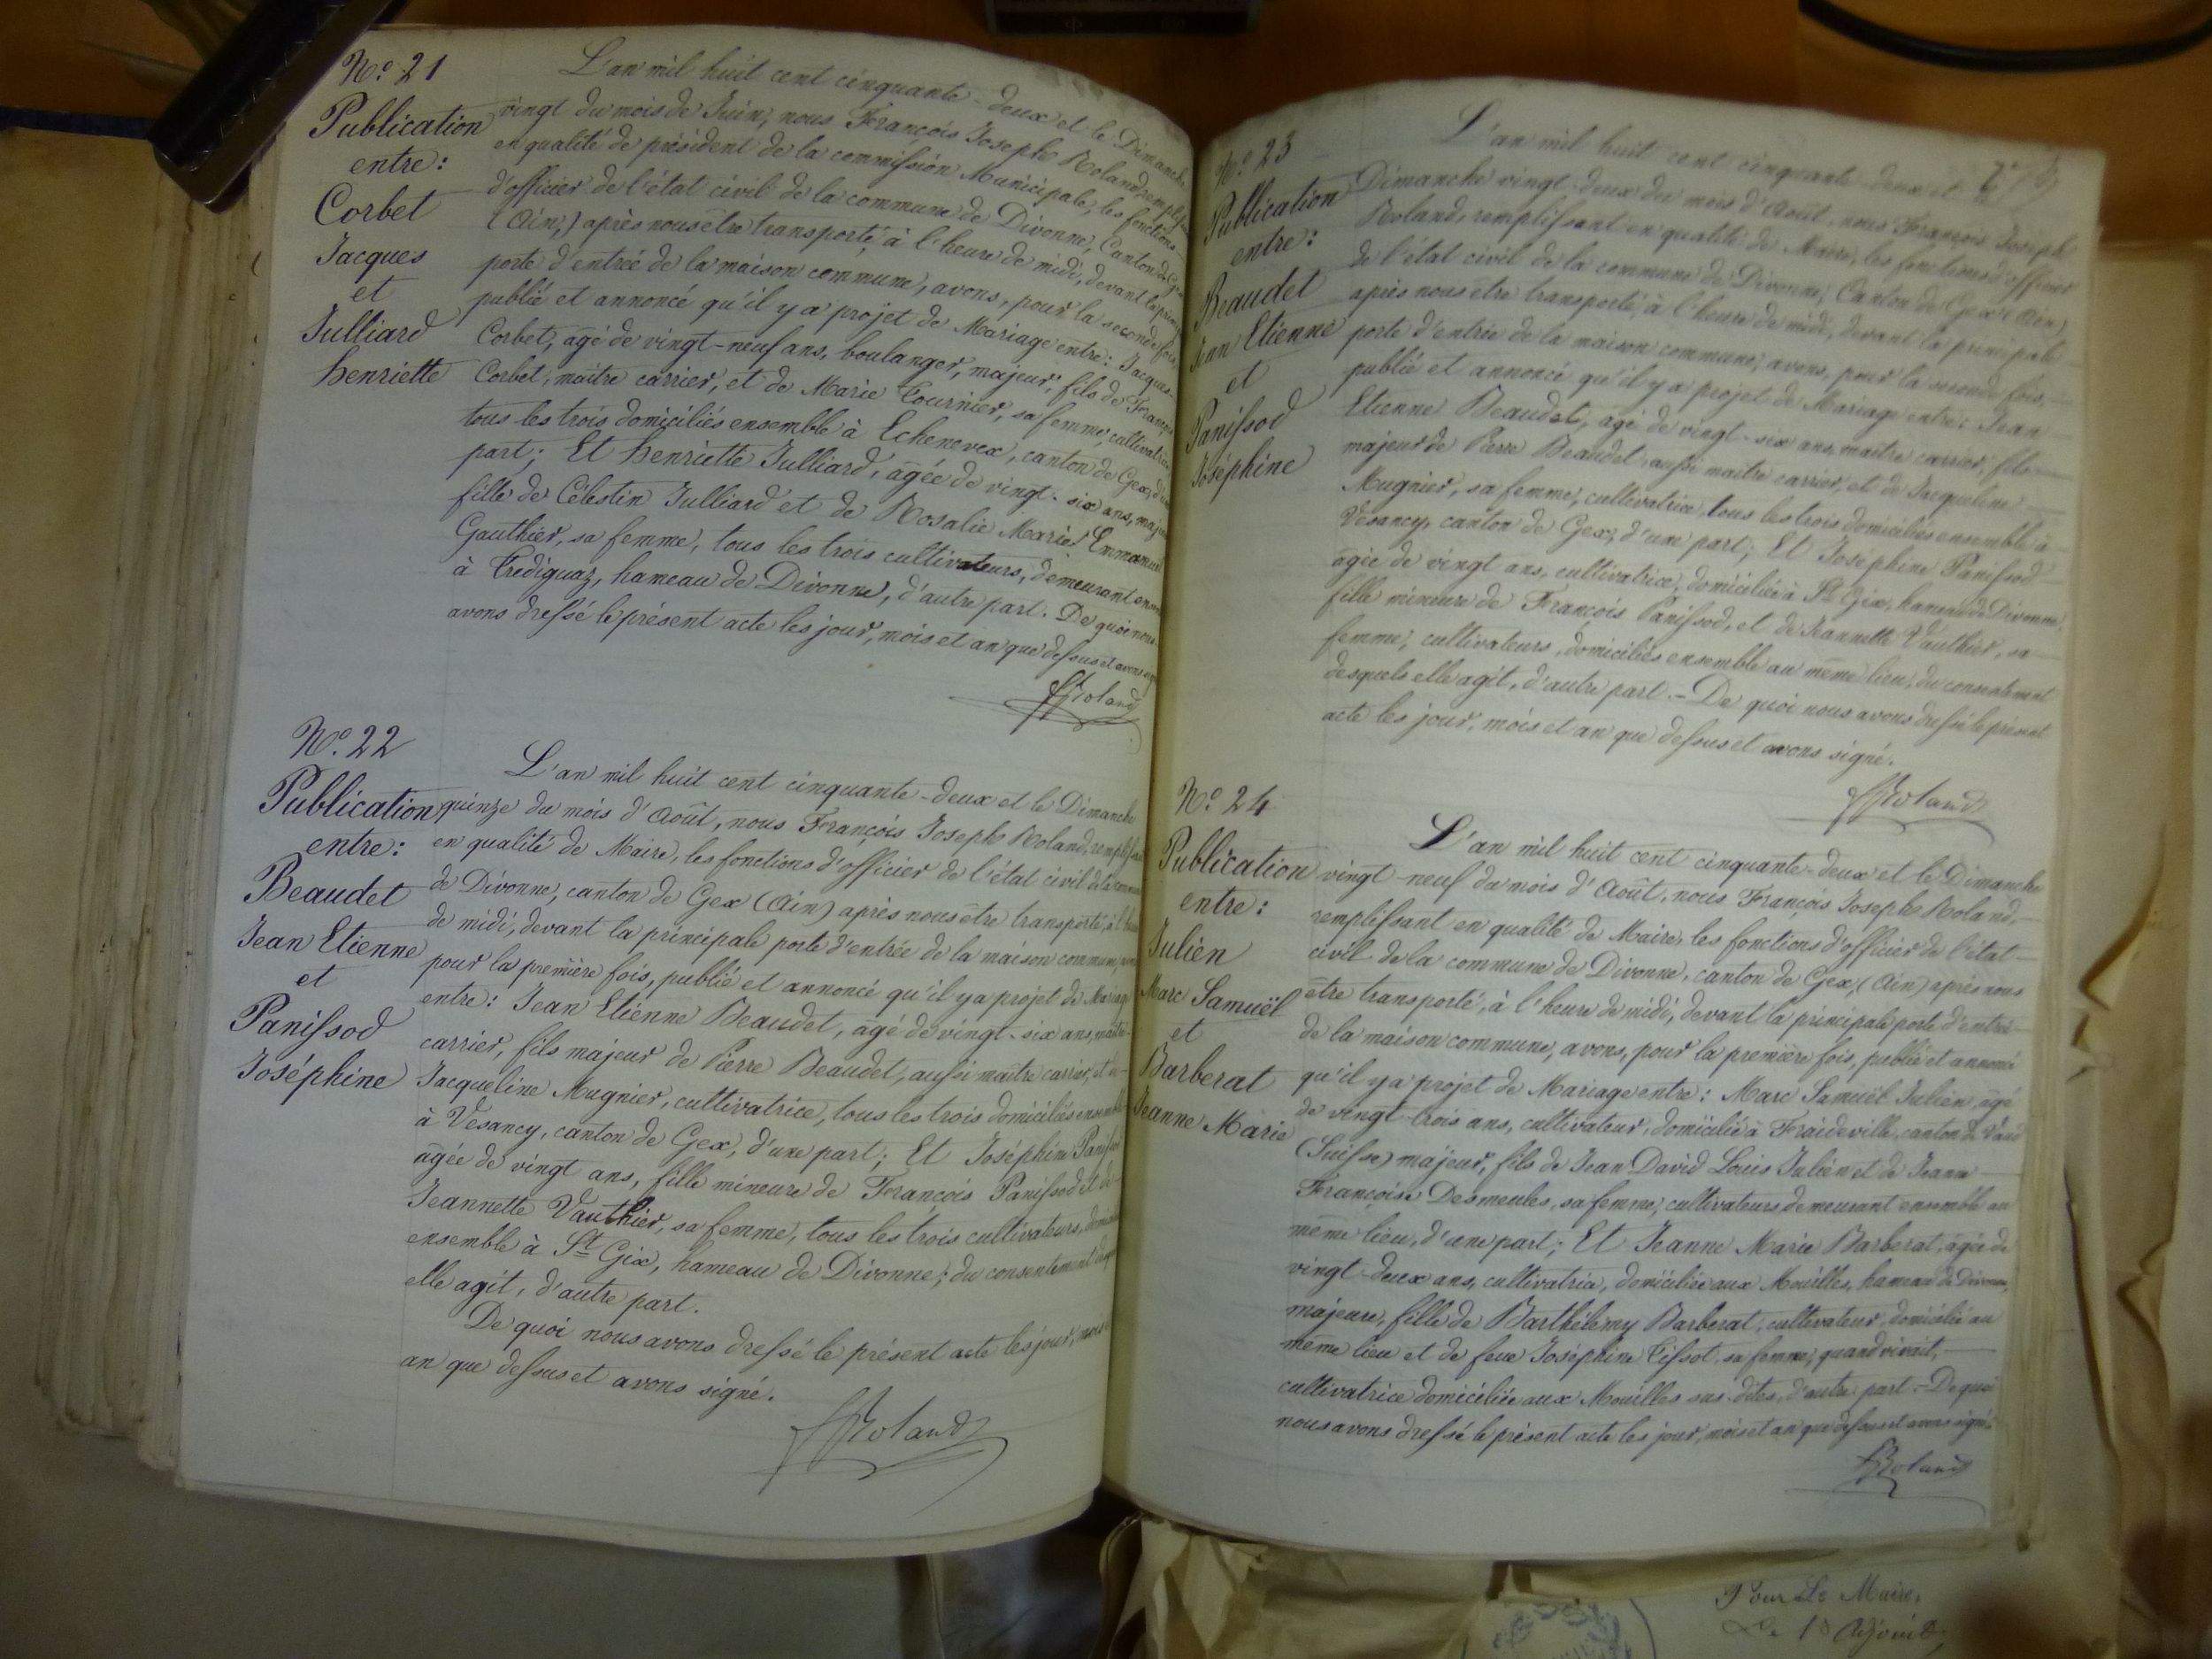 N.º 21
Publication
entre:
Corbet
Jacques
et
Julliard
henriette
L'an mil huit cent cinquante-deux et le Dimanche
vingt du mois de Juin, nous François Joseph Roland,
en qualité de président de la commission Municipale, les fonctions
d'officier de l'état civil de la commune de Divonne, Canton de
(Ain,) après nous être transporté, à l'heure de midi, devant la
porte d'entrée de la maison commune, avons, pour la seconde fois,
publié et annoncé qu'il y a projet de Mariage entre: Jacques
Corbet, agé de vingt-neuf ans, boulanger, majeur, fils de François
Corbet, maitre carrier, et de Marie Tournier, sa femme, cultivatrice
tous les trois domiciliés ensemble à Echenevex, canton de Gex,
part; Et henriette Julliard, agée de vingt-six ans,
fille de Célestin Julliard et de Rosalie Marie
Gauthier, sa femme, tous les trois cultivateurs, demeurant
à , hameau de Divonne, d'autre part. De quoi nous
avons dressé le présent acte les jour, mois et an que dessus et avons
Roland
N.º 22
Publication
entre:
Beaudet
Jean Etienne
et
Panissod
Joséphine
L'an mil huit cent cinquante-deux et le Dimanche
quinze du mois d'Août, nous François Joseph Roland,
en qualité de Maire, les fonctions d'officier de l'état civil de la
de Divonne, canton de Gex (Ain) après nous être transporté, à
de midi, devant la principale porte d'entrée de la maison commune,
pour la première fois, publié et annoncé qu'il y a projet de Mariage
entre: Jean Etienne Beaudet, agé de vingt-six ans, maitre
carrier, fils majeur de Pierre Beaudet, aussi maitre carrier, et de
Jacqueline Mugnier, cultivatrice, tous les trois domiciliés ensemble
à Vesancy, canton de Gex, d'une part; Et Joséphine Panissod
agée de vingt ans, fille mineure de François Panissod et de
Jeannette Vauthier, sa femme, tous les trois cultivateurs,
ensemble à St Gix, hameau de Divonne; du consentement
elle agit, d'autre part.
De quoi nous avons dressé le présent acte les jour, mois
an que dessus et avons signé.
Roland
N.º 23
Publication
entre:
Beaudet
Jean Etienne
et
Panissod
Joséphine
L'an mil huit cent cinquante-deux et le
Dimanche vingt-deux du mois d'Août, nous François Joseph
Roland, remplissant en qualité de Maire, les fonctions d'officier
de l'état civil de la commune de Divonne, Canton de Gex (Ain)
après nous être transporté, à l'heure de midi, devant la principale
porte d'entrée de la maison commune, avons, pour la seconde fois,
publié et annoncé qu'il y a projet de Mariage entre: Jean
Etienne Beaudet, agé de vingt-six ans, maitre carrier, fils
majeur de Pierre Beaudet, aussi maitre carrier, et de Jacqueline
Mugnier, sa femme, cultivatrice, tous les trois domiciliés ensemble à
Vesancy, canton de Gex, d'une part; Et Joséphine Panissod
agée de vingt ans, cultivatrice, domiciliée à St Gix, hameau de Divonne,
fille mineure de François Panissod, et de Jeannette Vauthier, sa
femme, cultivateurs, domiciliés ensemble au même lieu, du consentement
desquels elle agit, d'autre part.- De quoi nous avons dressé le présent
acte les jour, mois et an que dessus et avons signé.
Roland
N.º 24
Publication
entre:
Julien
Marc Samuël
et
Barberat
Jeanne Marie
L'an mil huit cent cinquante-deux et le Dimanche
vingt-neuf du mois d'Août, nous François Joseph Roland,
remplissant en qualité de Maire, les fonctions d'officier de l'état
civil de la commune de Divonne, canton de Gex, (Ain) après nous
être transporté, à l'heure de midi, devant la principale porte d'entrée
de la maison commune, avons, pour la première fois, publié et annoncé
qu'il y a projet de Mariage entre: Marc Samuël Julien, agé
de vingt-trois ans, cultivateur, domicilié à Fraideville, canton de Vaud
(Suisse) majeur, fils de Jean David Louis Julien et de Jeanne
Françoise Desmeules, sa femme, cultivateurs demeurant ensemble au
même lieu, d'une part; Et Jeanne Marie Barberat, agée de
vingt-deux ans, cultivatrice, domiciliée aux Mouilles, hameau de Divonne,
majeure, fille de Barthélemy Barberat, cultivateur, domicilié au
même lieu et de feue Joséphine Tissot, sa femme, quand vivait,
cultivatrice domiciliée aux Mouilles sus-dites, d'autre part.- De quoi
nous avons dressé le présent acte les jour, mois et an que dessus et avons signé.
Roland
Pour Le Maire,